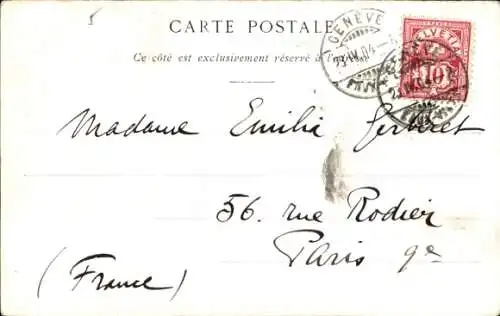 5
CARTE POSTALE
Ce côté est exclusivement réservé à l'adresse
GENÈVE
HELVETIA
10
Madame Emilia
56. rue Rodier
Paris 9e
(France)